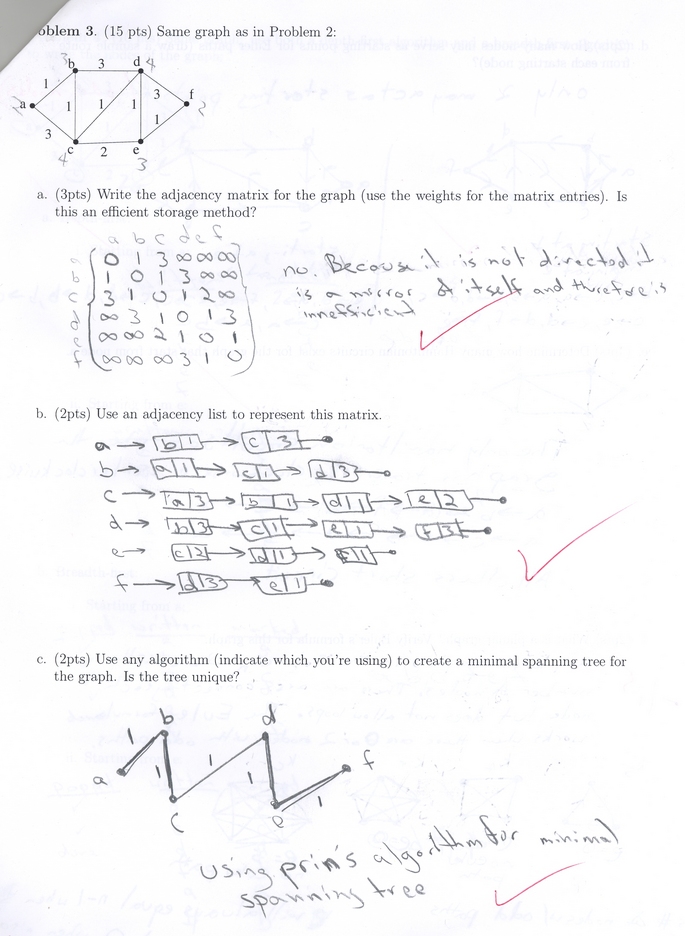 oblem 3. (15 pts) Same graph as in Problem 2:
3 b 3 d 4
1 3 f
2 a 1 1 1 2
3 1
4 c 2 e
3
a. (3pts) Write the adjacency matrix for the graph (use the weights for the matrix entries). Is
this an efficient storage method?
a b c d e f
a 0 1 3 ∞ ∞ ∞
b 1 0 1 3 ∞ ∞
c 3 1 0 1 2 ∞
d ∞ 3 1 0 1 3
e ∞ ∞ 2 1 0 1
f ∞ ∞ ∞ 3 1 0
no. Because it is not directed it
is a mirror of itself and therefore is
innefficient
b. (2pts) Use an adjacency list to represent this matrix.
a → b 1 → c 3
b → a 1 → c 1 → d 3
c → a 3 → b 1 → d 1 → e 2
d → b 3 → c 1 → e 1 → f 3
e → c 2 → d 1 → f 1
f → d 3 → e 1
c. (2pts) Use any algorithm (indicate which you're using) to create a minimal spanning tree for
the graph. Is the tree unique?
b d
1 f
a 1 1 1
c e 1
using prin's algorithm for minimal
spanning tree